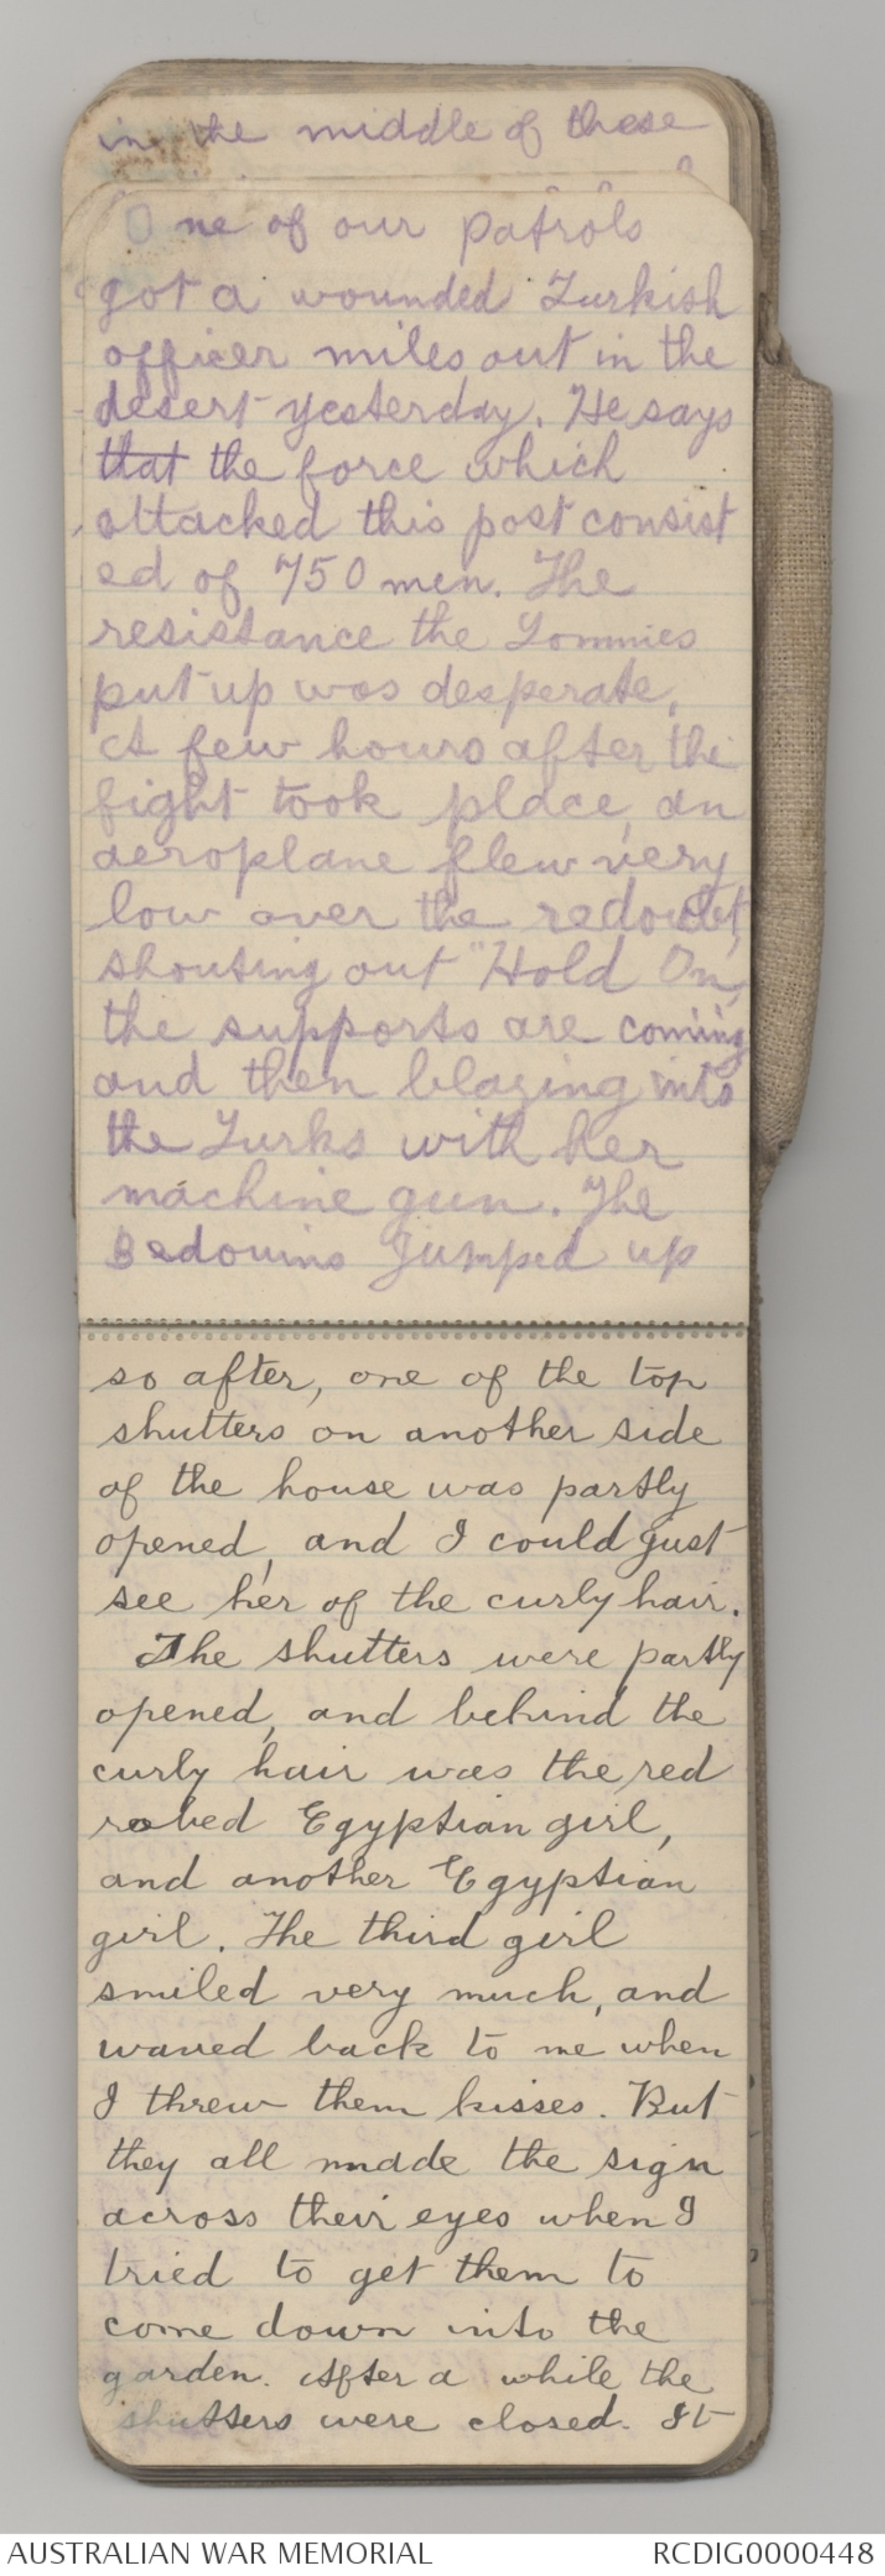 in the middle of these
One of our patrols
got a wounded Turkish
officer miles out in the
desert yesterday. He says
that the force which
attacked this post consist
ed of 750 men. The
resistance the Tommies
put up was desperate.
A few hours after the
fight took place, an
aeroplane flew very
low over the redoubt,
shouting out "Hold On,
the supports are coming
and then blazing into
the Turks with her
machine gun. The
Bedouins jumped up
so after, one of the top
shutters on another side
of the house was partly
opened, and I could just
see her of the curly hair.
The shutters were partly
opened, and behind the
curly hair was the red
robed Egyptian girl,
and another Egyptian
girl. The third girl
smiled very much, and
waved back to me when
I threw them kisses. But
they all made the sign
across their eyes when I
tried to get them to
come down into the
garden. After a while the
shutters were closed. It
AUSTRALIAN WAR MEMORIAL
RCDIG0000448